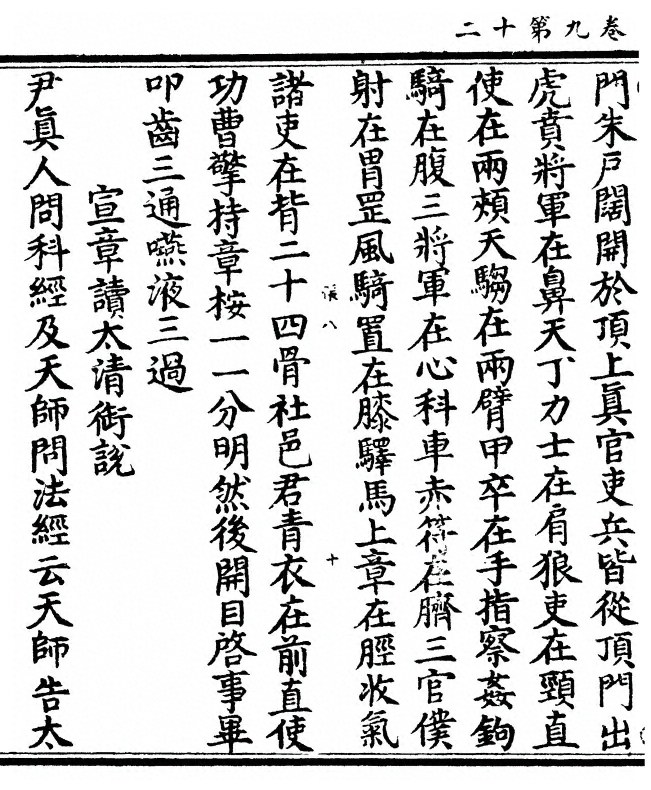 二十第九卷
門朱戶闊開於頂上眞官吏兵皆從頂門出
虎賁將軍在鼻天丁力士在肩狼吏在頸直
使在兩頰天騶在兩臂甲卒在手指察姦鉤
騎在腹三將軍在心科車赤符在臍三官僕
射在胃罡風騎置在膝驛馬上章在脛收氣
八
十
諸吏在背二十四骨社邑君青衣在前直使
功曹擎持章桉一一分明然後開目啓事畢
叩齒三通嚥液三過
宣章讀太清銜說
尹眞人問科經及天師問法經云天師告太